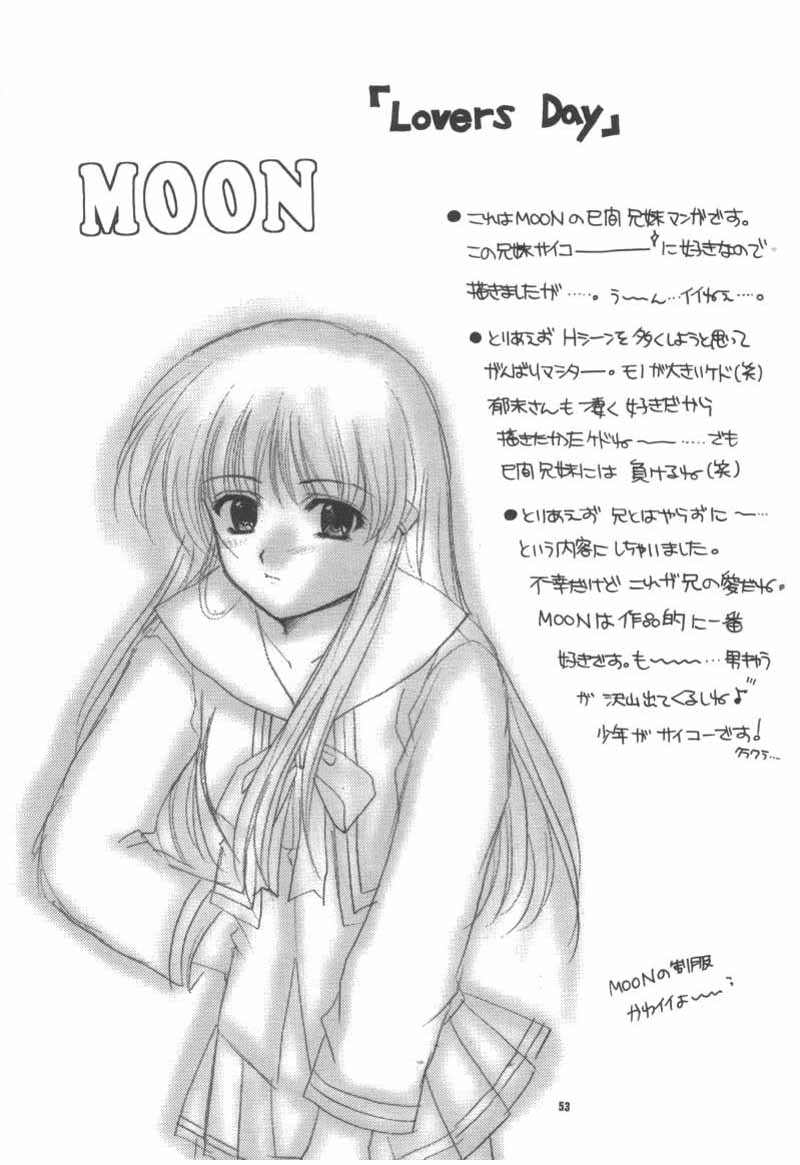 『Lovers Day』
MOON
●これはMOONの巳間兄妹マンガです。
この兄妹サイコ――――に好きなので
描きましたが……。う〜〜ん…イイねぇ……。
●とりあえず Hシーンを多くしようと思って
がんばりマシター。モノが大きいケド(笑)
郁未さんも凄く好きだから
描きたかったケドね〜〜……でも
巳間兄妹には負けるね(笑)
●とりあえず 兄とはやらずに〜…
という内容にしちゃいました。
不幸だけど これが兄の愛だね。
MOONは作品的に一番
好きです。も〜〜〜…男きゃら
が沢山出てくるしね♪
少年がサイコーです!
クラクラ…
MOONの制服
かわイイよ〜〜
53